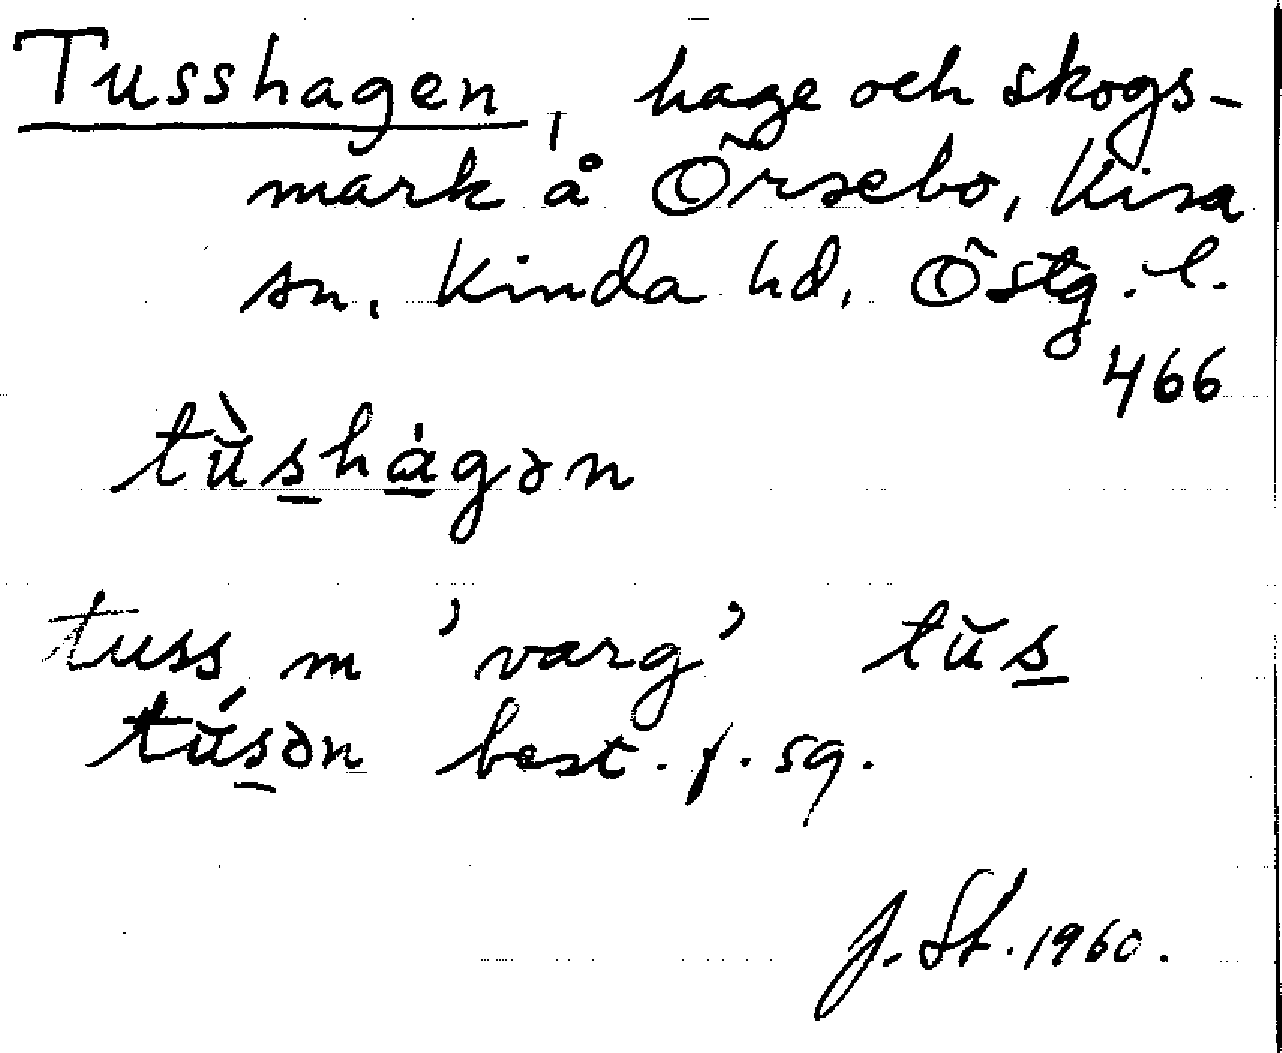 Tusshagen, hage och skogs-
mark å Örsebo, Kisa
sn. Kinda hd, Östg. l.
466
tù̆s̲hȧ̲gən
tuss m 'varg' tŭs̲
tŭ́s̲ən best. f. sg.
J. St. 1960.